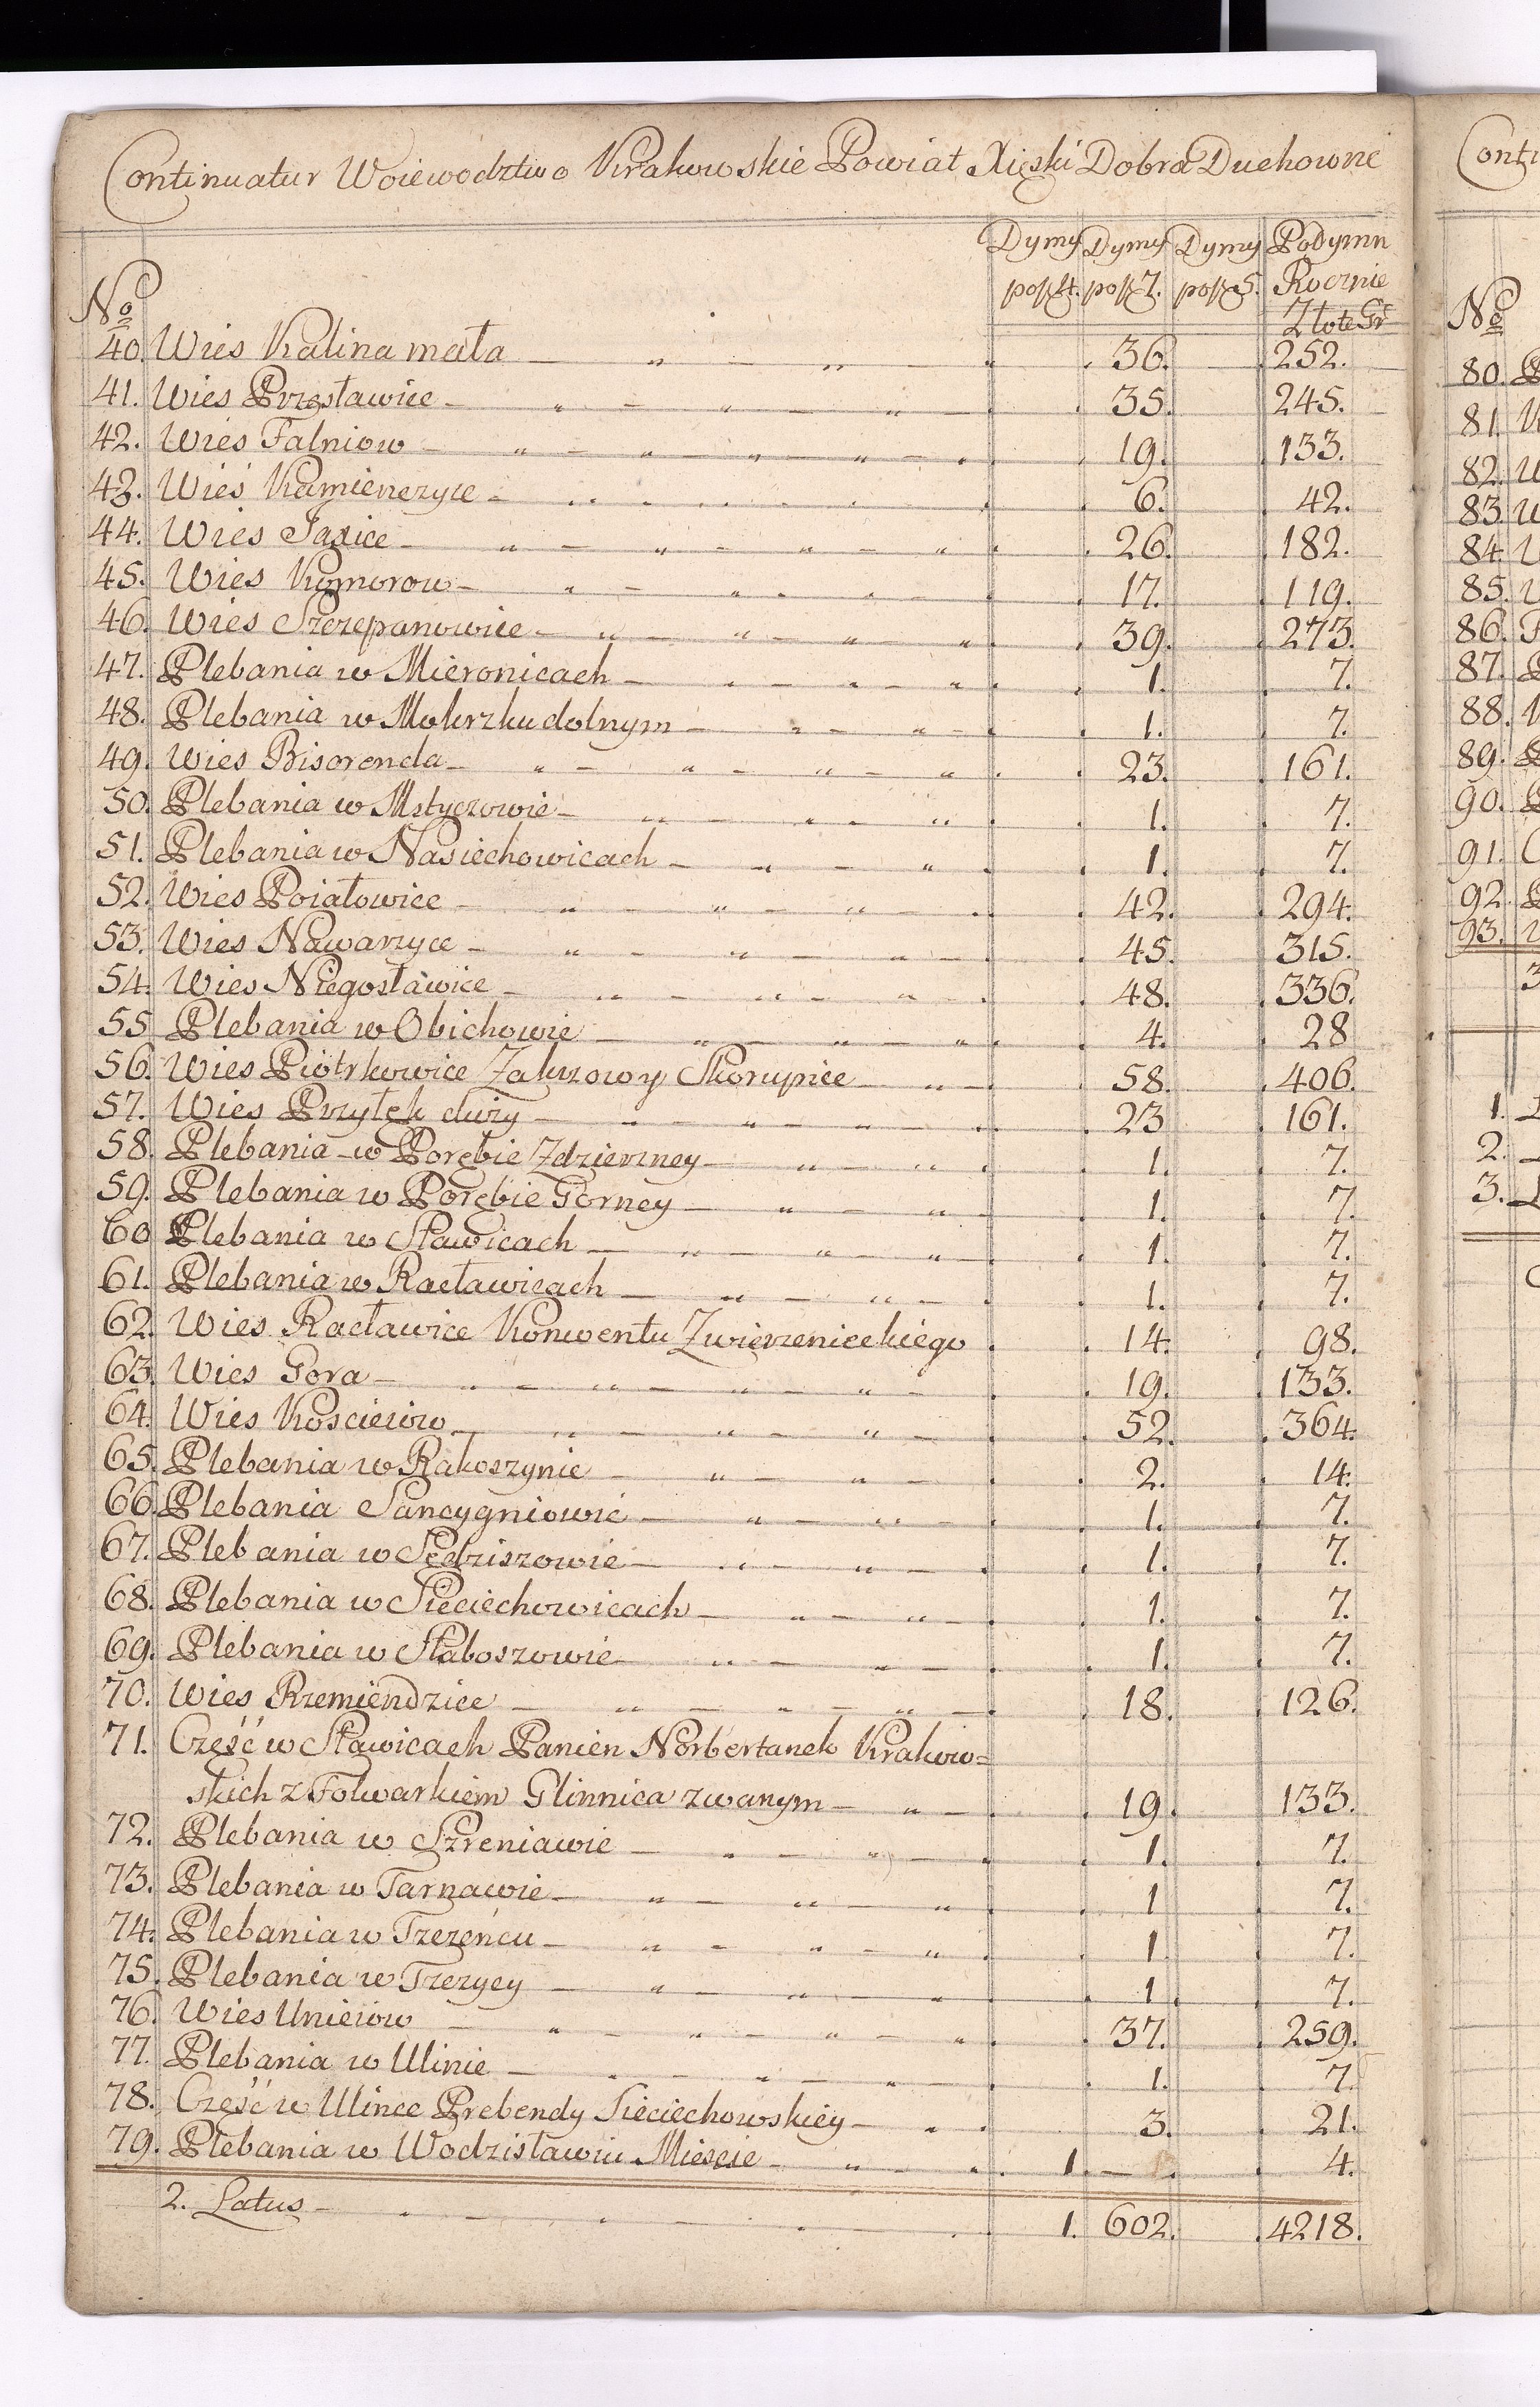 Continuatur Woiewodztwo Krakowskie Powiat Xięski Dobra Duchowne
No Dymy po zł 4. Dymy po zł 7. Dymy po zł 5. Podymn Rocznie Złote Gr
40. Wies Kalina mała 36. 252.
41. Wies Przesławice 35. 245.
42. Wies Falniow 19. 133.
43. Wieś Kamienczyce 6. 42.
44. Wies Jaxice 26. 182.
45. Wies Komorow 17. 119.
46. Wies Szczepanowice 39. 273.
47. Plebania w Mieronicach 1. 7.
48. Plebania w Mokrzku dolnym 1. 7.
49. Wies Bisorenda 23. 161.
50. Plebania w Mstyczowie 1. 7.
51. Plebania w Nasiechowicach 1. 7.
52. Wies Poiałowice 42. 294.
53. Wies Nawarzyce 45. 315.
54. Wies Niegosławice 48. 336.
55 Plebania w Obichowie 4. 28
56. Wies Piotrkowice Zakrzowy Skorupice 58. 406.
57. Wies Przyłęk duży 23 161.
58. Plebania w Porębie Zdzierzney 1. 7.
59. Plebania w Porębie Gorney 1. 7.
60 Plebania w Sławicach 1. 7.
61. Plebania w Racławicach 1. 7.
62. Wies Racławice Konwentu Zwierzenieckiego 14. 98.
63. Wies Gora 19. 133.
64. Wies Koscieiów 52. 364.
65. Plebania w Rakoszynie 2. 14.
66. Plebania Sancygniowie 1. 7.
67. Plebania w Sędziszowie 1. 7.
68. Plebania w Sieciechowicach 1. 7.
69. Plebania w Słaboszowie 1. 7.
70. Wies Rzemiendzice 18. 126.
71. Część w Sławicach Panien Norbertanek Krakow=
skich z Folwarkiem Glinnica zwanym 19. 133.
72. Plebania w Szreniawie 1. 7.
73. Plebania w Tarnawie 1 7.
74. Plebania w Trzeńcu 1 7.
75. Plebania w Trzezycy 1 7.
76. Wies Unieiów 37. 259.
77. Plebania w Ulinie 1. 7.
78. Część w Ulince Prebendy Sieciechowskiey 3. 21.
79. Plebania w Wodzisławiu Mieście 1. — 4.
2. Latus 1. 602. 4218.
Conti
No
80.
81.
82.
83.
84.
85.
86.
87.
88.
89.
90.
91.
92.
93.
1.
2.
3.